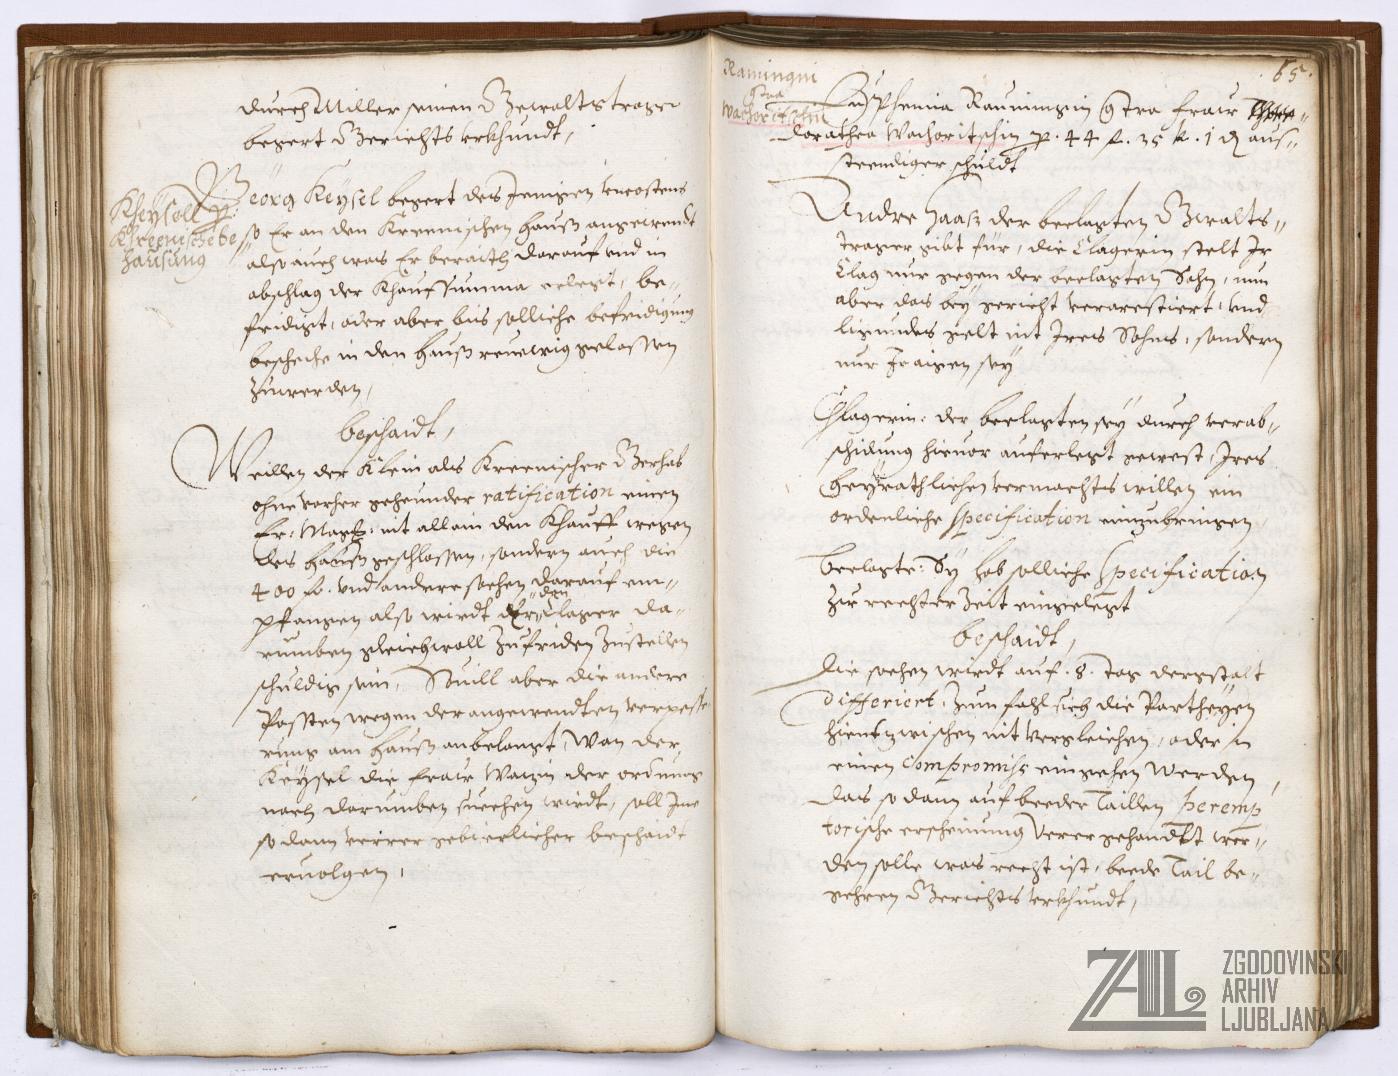 durch Miller seinen Gewaltstrager
begert Gerichts erkhundt,
Kheysell p:
Khreenische be
hausung
Georg Keysel begert des Jenigen uncostens
so Er an den Kreenischen hauß angewendt
also auch was Er beraith darauf und in
abschlag der Khauf Summa erlegt, be-
fridigt, oder aber bis solliche befridigung
beschehe in den hauß ruewig gelassen
zuwerden,
beschaidt,
Weillen der Klein als Kreenischer Gerhab
ohne vorher gehunder ratification einen
Er: Mag: nit allain den Khauff wegen
des hauß geschlossen, sondern auch die
400 fl. und andere sachen darauf em-
pfangen also wirdt Er den Clager da-
rumben gleichwoll zufriden zustellen
schuldig sein, Souill aber die andere
Possten wegen der angewendten verpesse
rung am hauß anbelangt, Wan der
Keysel die fraw Wazin der ordnung
nach darumben suechen wirdt, soll Ime
so dann verrer gebierlicher beschaidt
ervolgen,
65.
Ramingni
gtra
Wachoritschin
Eusphemia Rauningin gtra fraw
dorathea Wachoritschin p. 44 f. 35 k. 1 d aus-
steendiger schuldt
Andre Haas der beclagten Gwalts-
trager gibt für, die Clagerin stelt Jr
Clag nur gegen der beclagten Sohn, nun
aber das bey gericht verarrestiert, und
ligundes gelt nit Jres Sohns, sondern
nur Jr aigen sey
Chlagerin: der beclagten sey durch verab-
schidung hievor auferlegt gewest, Jres
heyrathlichen vermachts willen ein
ordenliche specification einzubringen
beclagte: Sy hab solliche specification
zu rechter Zeit eingelegt
beschaidt,
Die sachen wirdt auf 8. tag dergstalt
differiert, Zum fahl sich die Partheyen
hientzwischen nit vergleichen, oder in
einen compromiss eingehen werden,
das so dann auf beeder Taillen peremp
torische erscheinung verer gehandlt wer-
den solle was recht ist, beede Tail be-
gehren Gerichts erkhundt,
ZAL
ZGODOVINSKI
ARHIV
LJUBLJANA